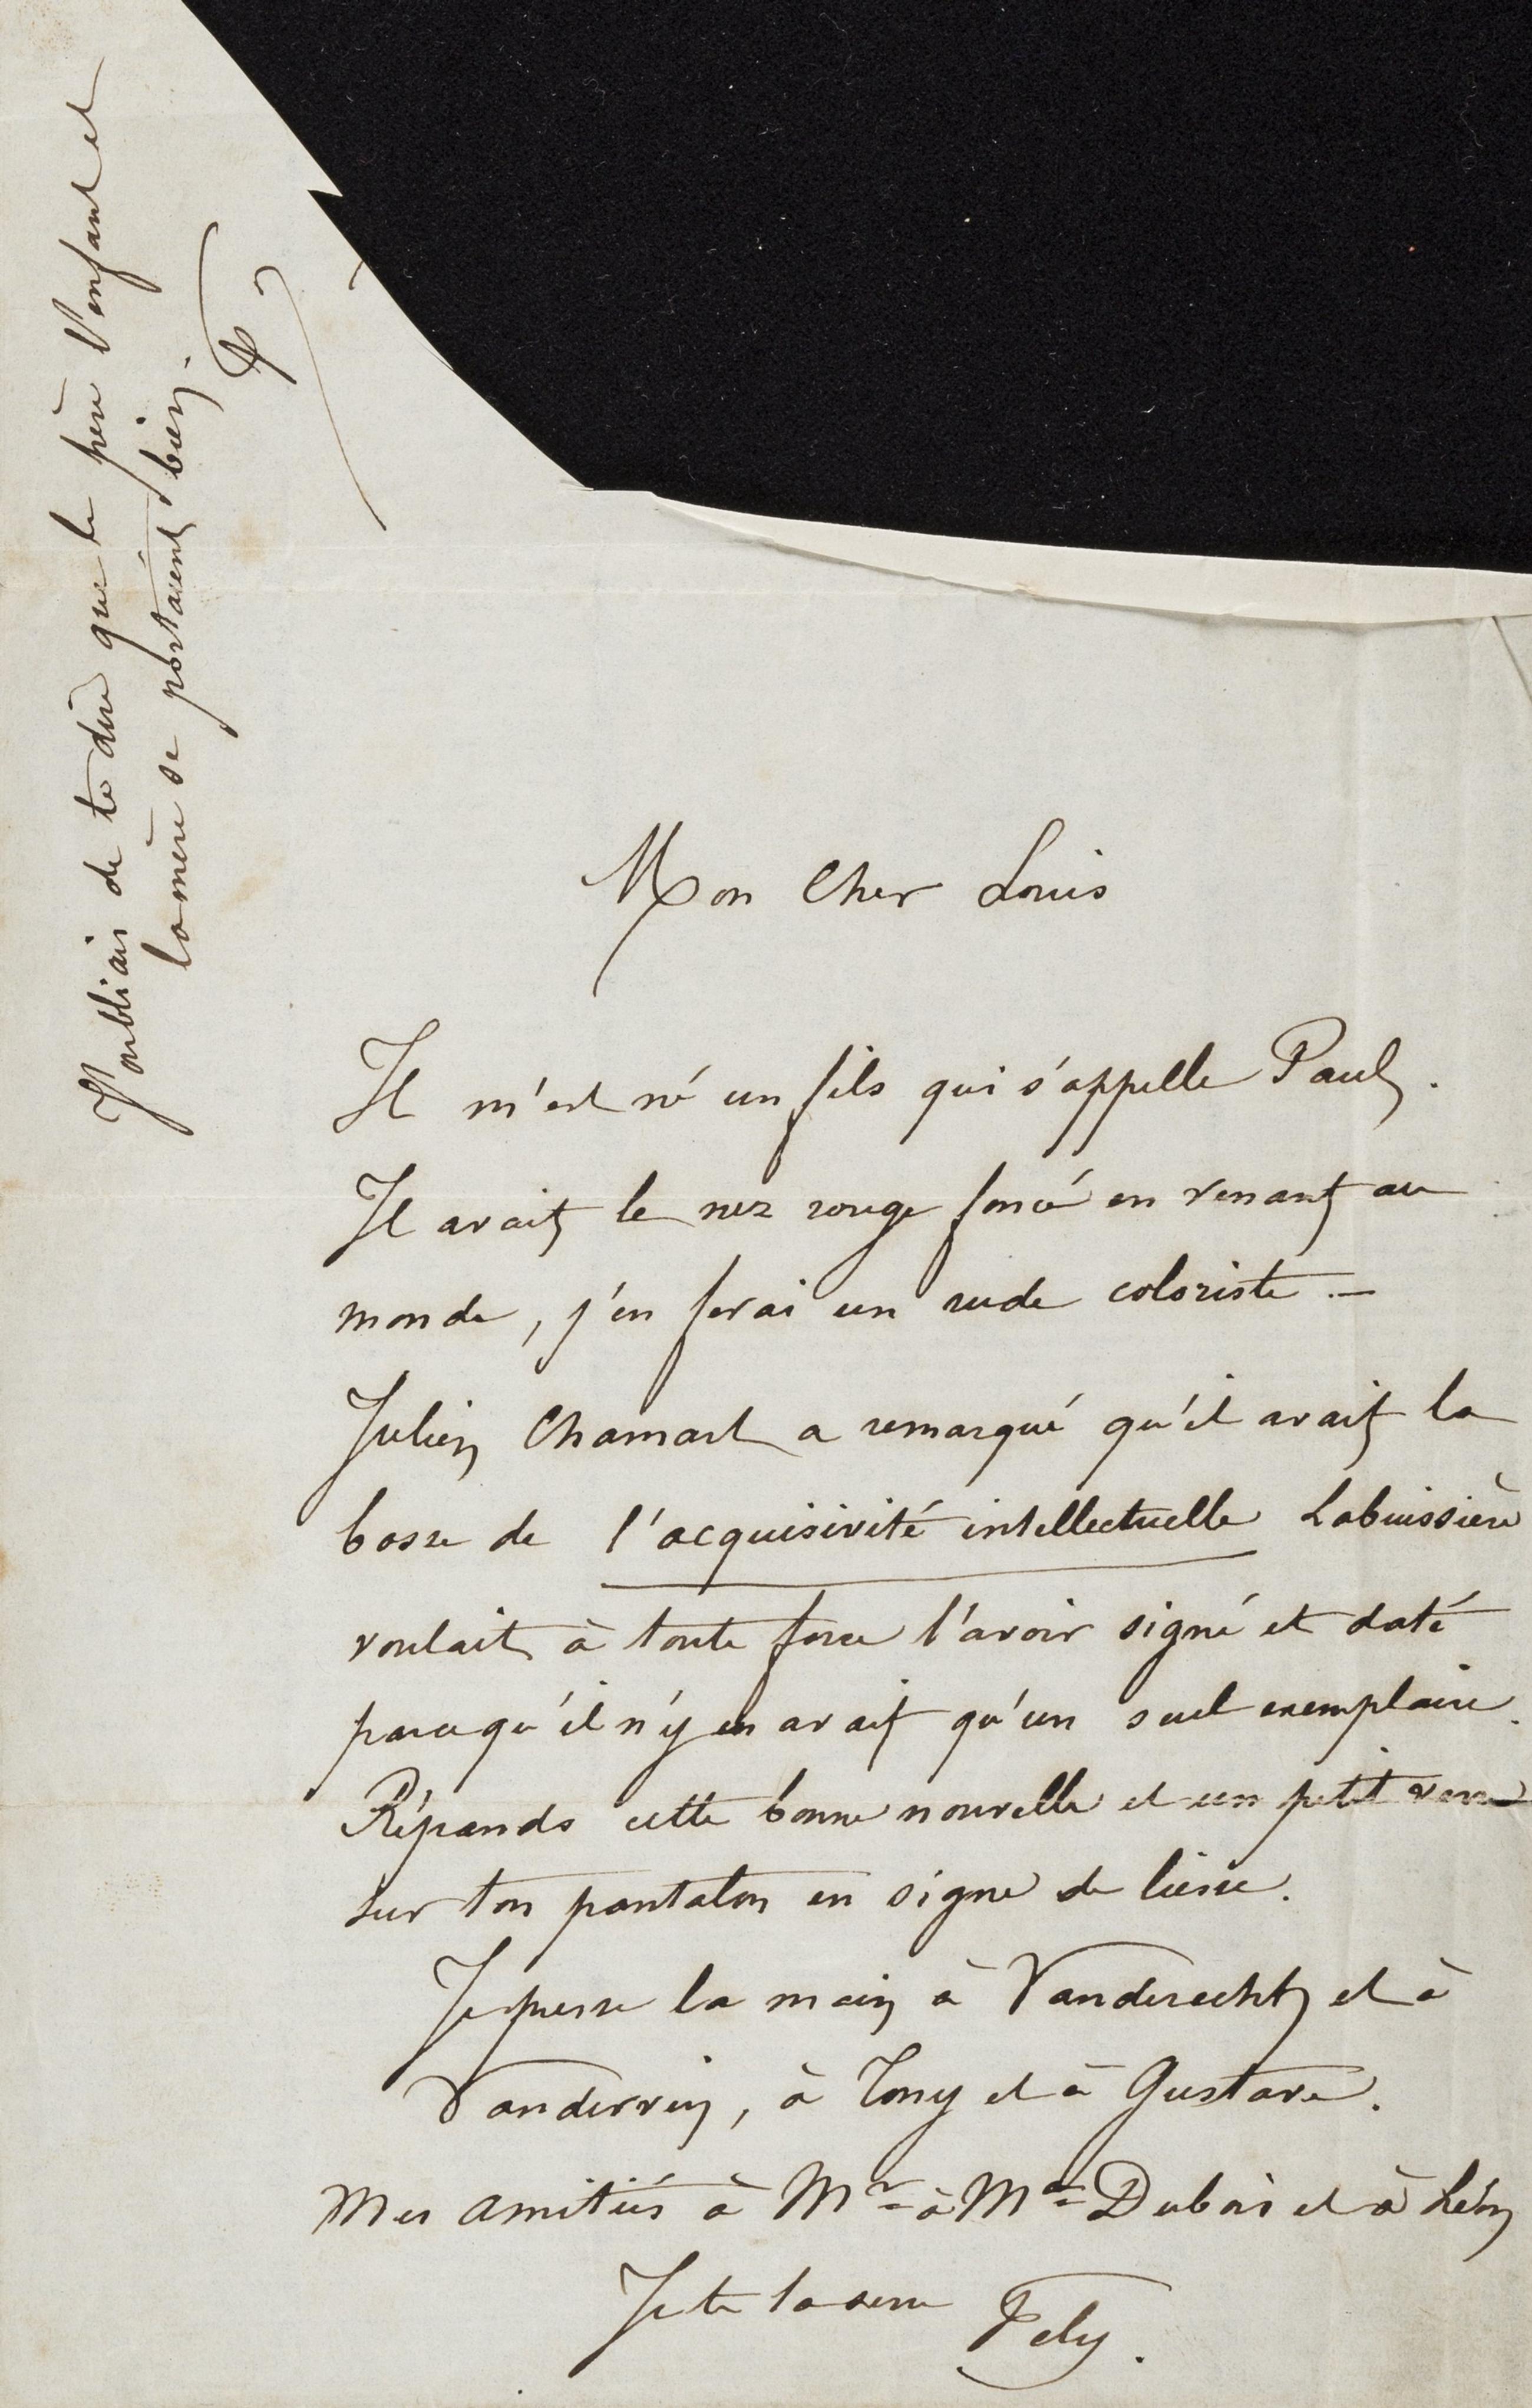 Mon Cher Louis
Il m'est né un fils qui s'appelle Paul.
Il avait le nez rouge foncé en venant au
monde, j'en ferai un rude coloriste. —
Julien Chamart a remarqué qu'il avait la
bosse de l'acquisivité intellectuelle Labuissière
voulait à toute force l'avoir signé et daté
parcequ'il n'y en avait qu'un seul exemplaire.
Répands cette bonne nouvelle et un petit verre
sur ton pantalon en signe de liesse.
Je presse la main à Vanderecht et à
Vandervin, à Tony et à Gustave.
Mes amitiés à Mr à Me Dubois et à Léon
Je te la serre Fely.
J'oubliais de te dire que le père l'enfant et
la mère se portaient bien.
F